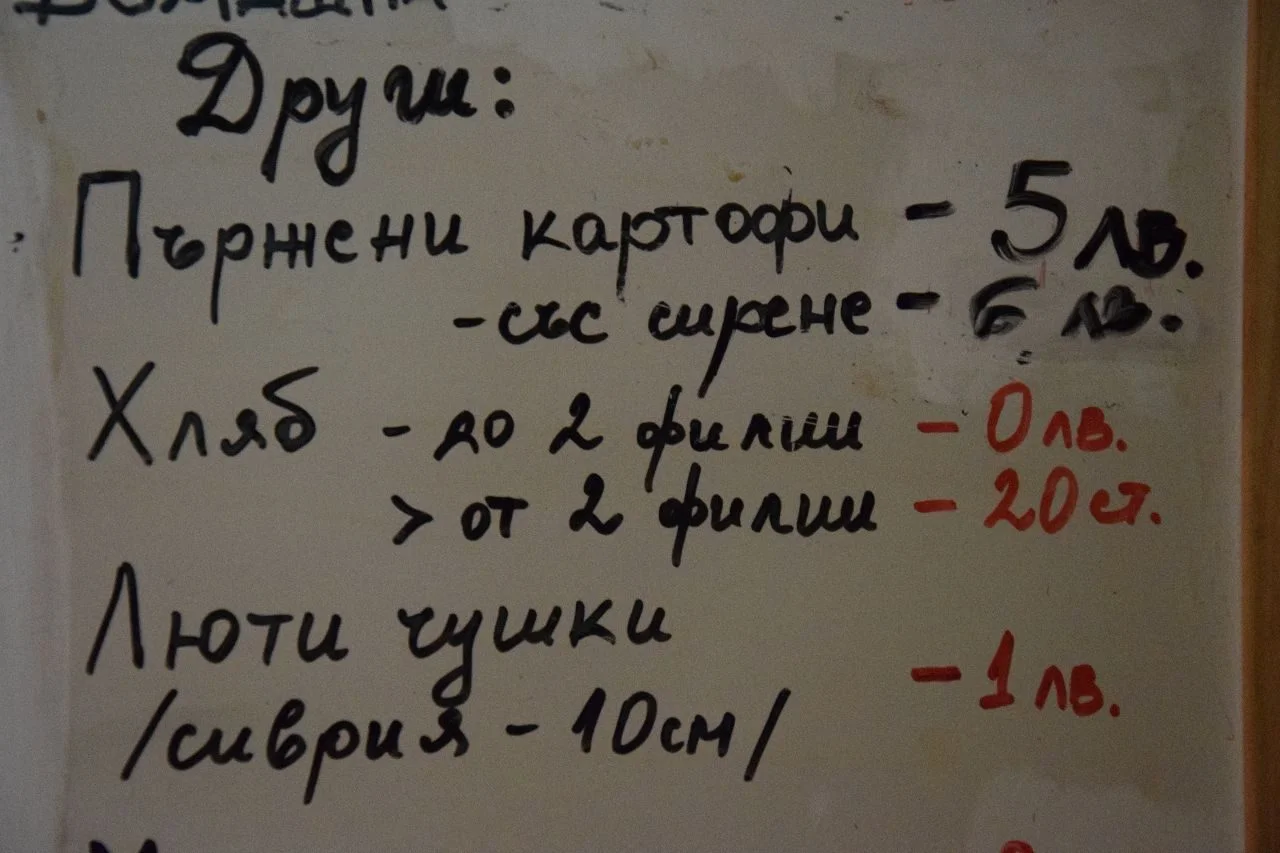 Други:
Пържени картофи - 5 лв.
- със сирене - 6 лв.
Хляб - до 2 филии - 0 лв.
> от 2 филии - 20 ст.
Люти чушки
/сиврия - 10см/ - 1 лв.